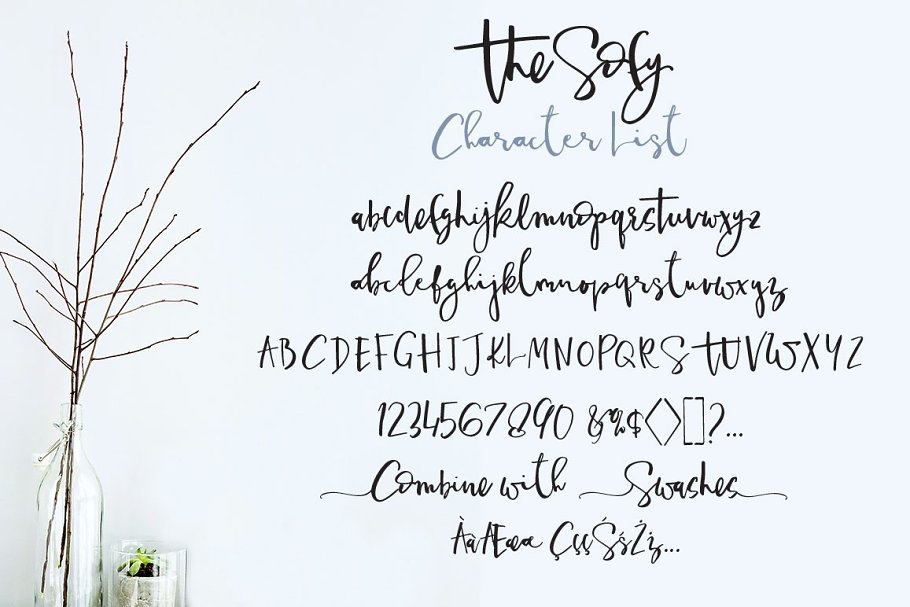 the Sofy
Character List
abcdefghijklmnopqrstuvwxyz
abcdefghijklmnopqrstuvwxyz
ABCDEFGHIJKLMNOPQRSTUVWXYZ
1234567890 &%$<>[]?...
Combine with Swashes
ÀàÆæœ ÇçşŚśŻż...